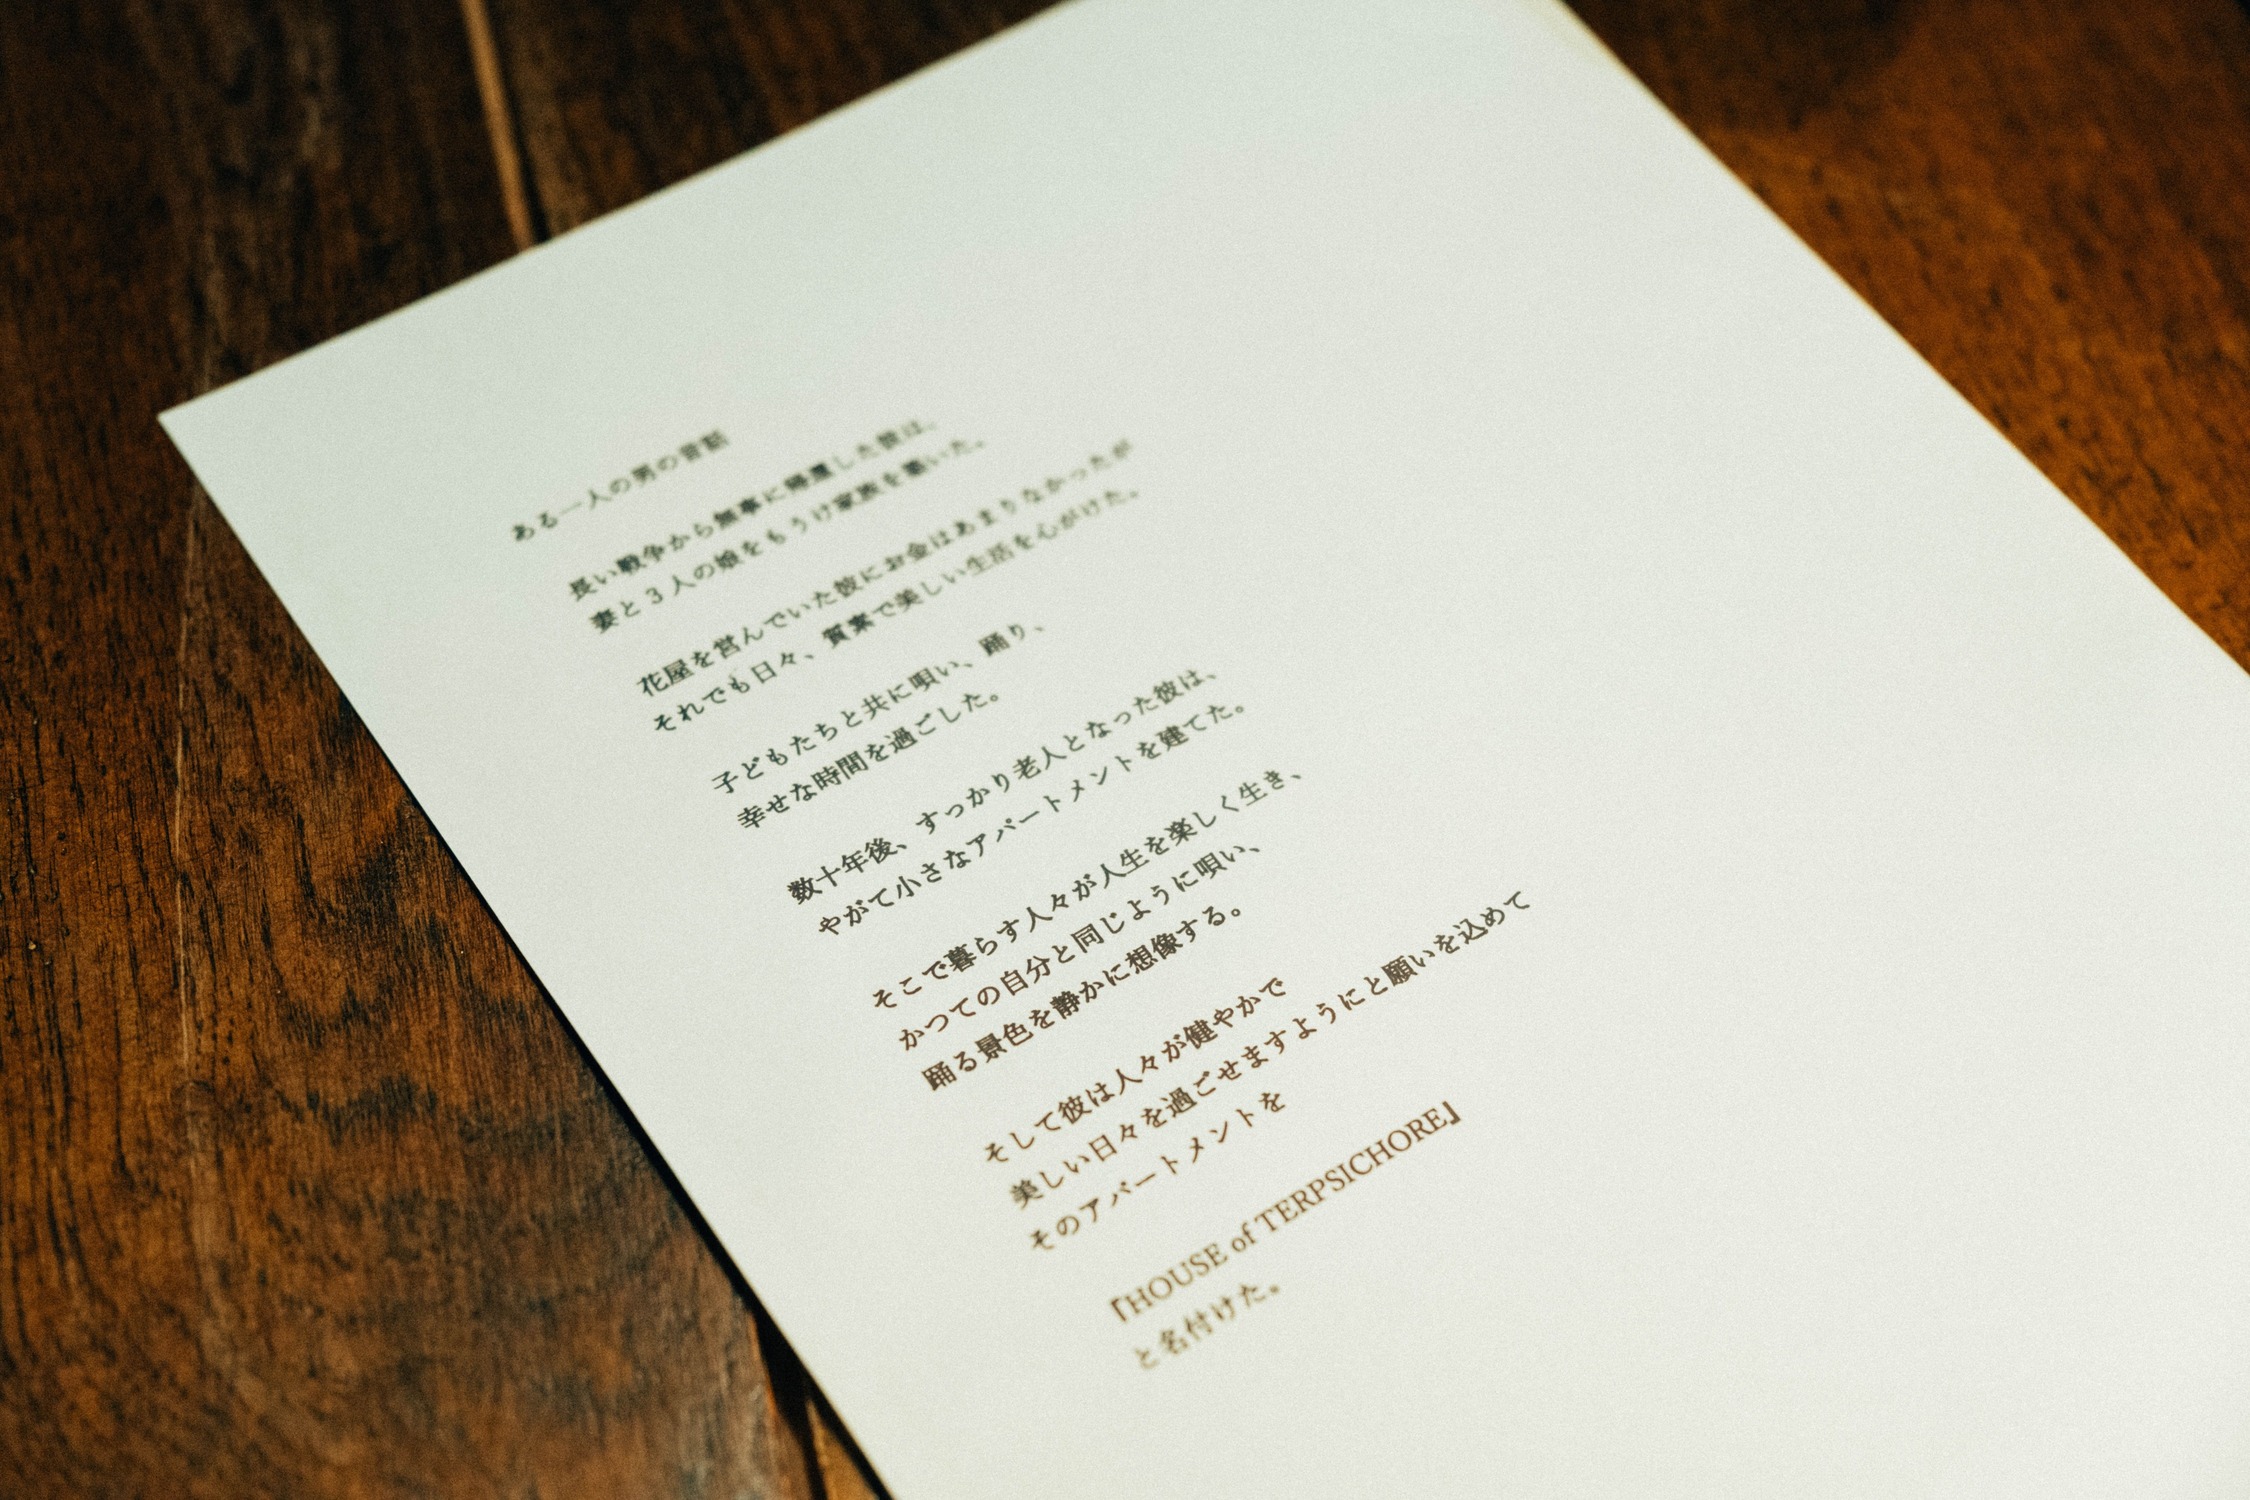 ある一人の男の昔話
長い戦争から無事に帰還した彼は、
妻と3人の娘をもうけ家族を築いた。
花屋を営んでいた彼にお金はあまりなかったが
それでも日々、質素で美しい生活を心がけた。
子どもたちと共に唄い、踊り、
幸せな時間を過ごした。
数十年後、すっかり老人となった彼は、
やがて小さなアパートメントを建てた。
そこで暮らす人々が人生を楽しく生き、
かつての自分と同じように唄い、
踊る景色を静かに想像する。
そして彼は人々が健やかで
美しい日々を過ごせますようにと願いを込めて
そのアパートメントを
『HOUSE of TERPSICHORE』
と名付けた。